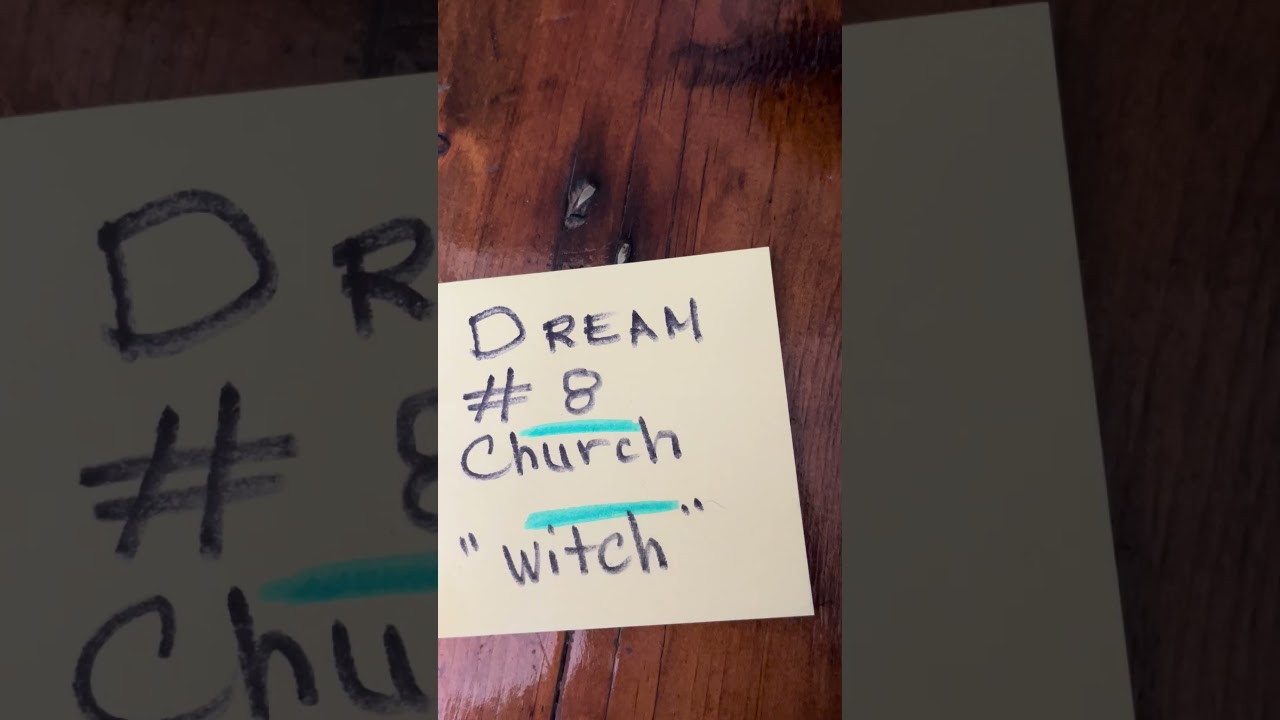 DREAM
# 8
Church
"witch"